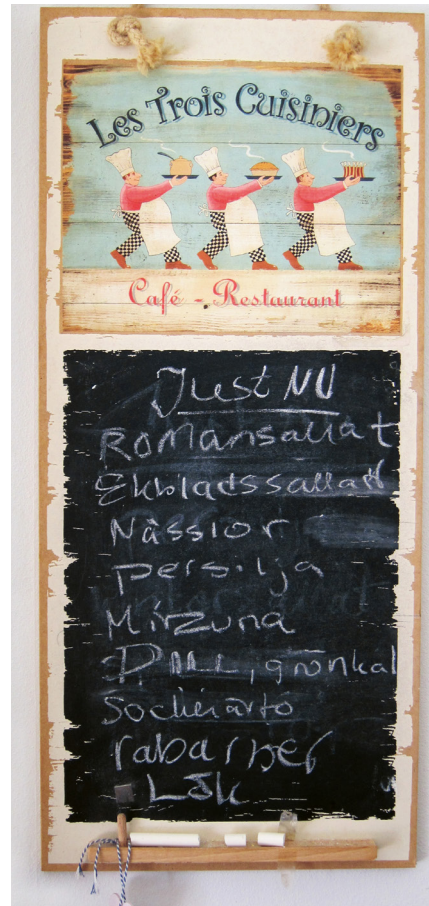 Les Trois Cuisiniers
Café - Restaurant
Just NU
Romansallat
Ekbladssallat
Nässlor
Persilja
Mizuna
Dill, grönkål
Sockerärto
rabarber
Lök